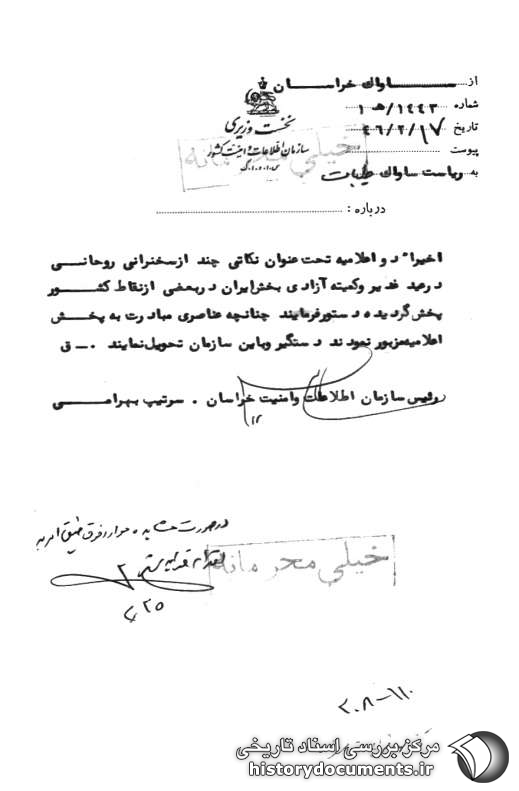 از ســـاواك خراســـان
شماره ۱۴۴۳/هـ ۱
نخست وزیری
تاریخ ۴۶/۲/۱۷
سازمان اطلاعات و امنیت کشور
پیوست
س.ا.و.ا.ک
خیلی محرمانه
به ریاست ساواك طیبات
درباره :
اخیرا" دو اعلامیه تحت عنوان نکاتی چند ازسخنرانی روحانـــی
درعید غدیر وکمیته آزادی بخش ایران دربعضی ازنقاط کشـــور
پخش گردیده دستورفرمایند چنانچه عناصری مبادرت به پخـــش
اعلامیه‌مزبور نمودند دستگیر وباین سازمان تحویل نمایند ۰ــ ق
رئیس سازمان اطلاعات وامنیت خراسان . سرتیپ بهرامـــی
۱۲
درصورت مشاهده موارد فوق طبق امریه
خیلی محرمانه
۲
۲۵
۲۰۸-۱۱۰
مرکز بررسی اسناد تاریخی
historydocuments.ir